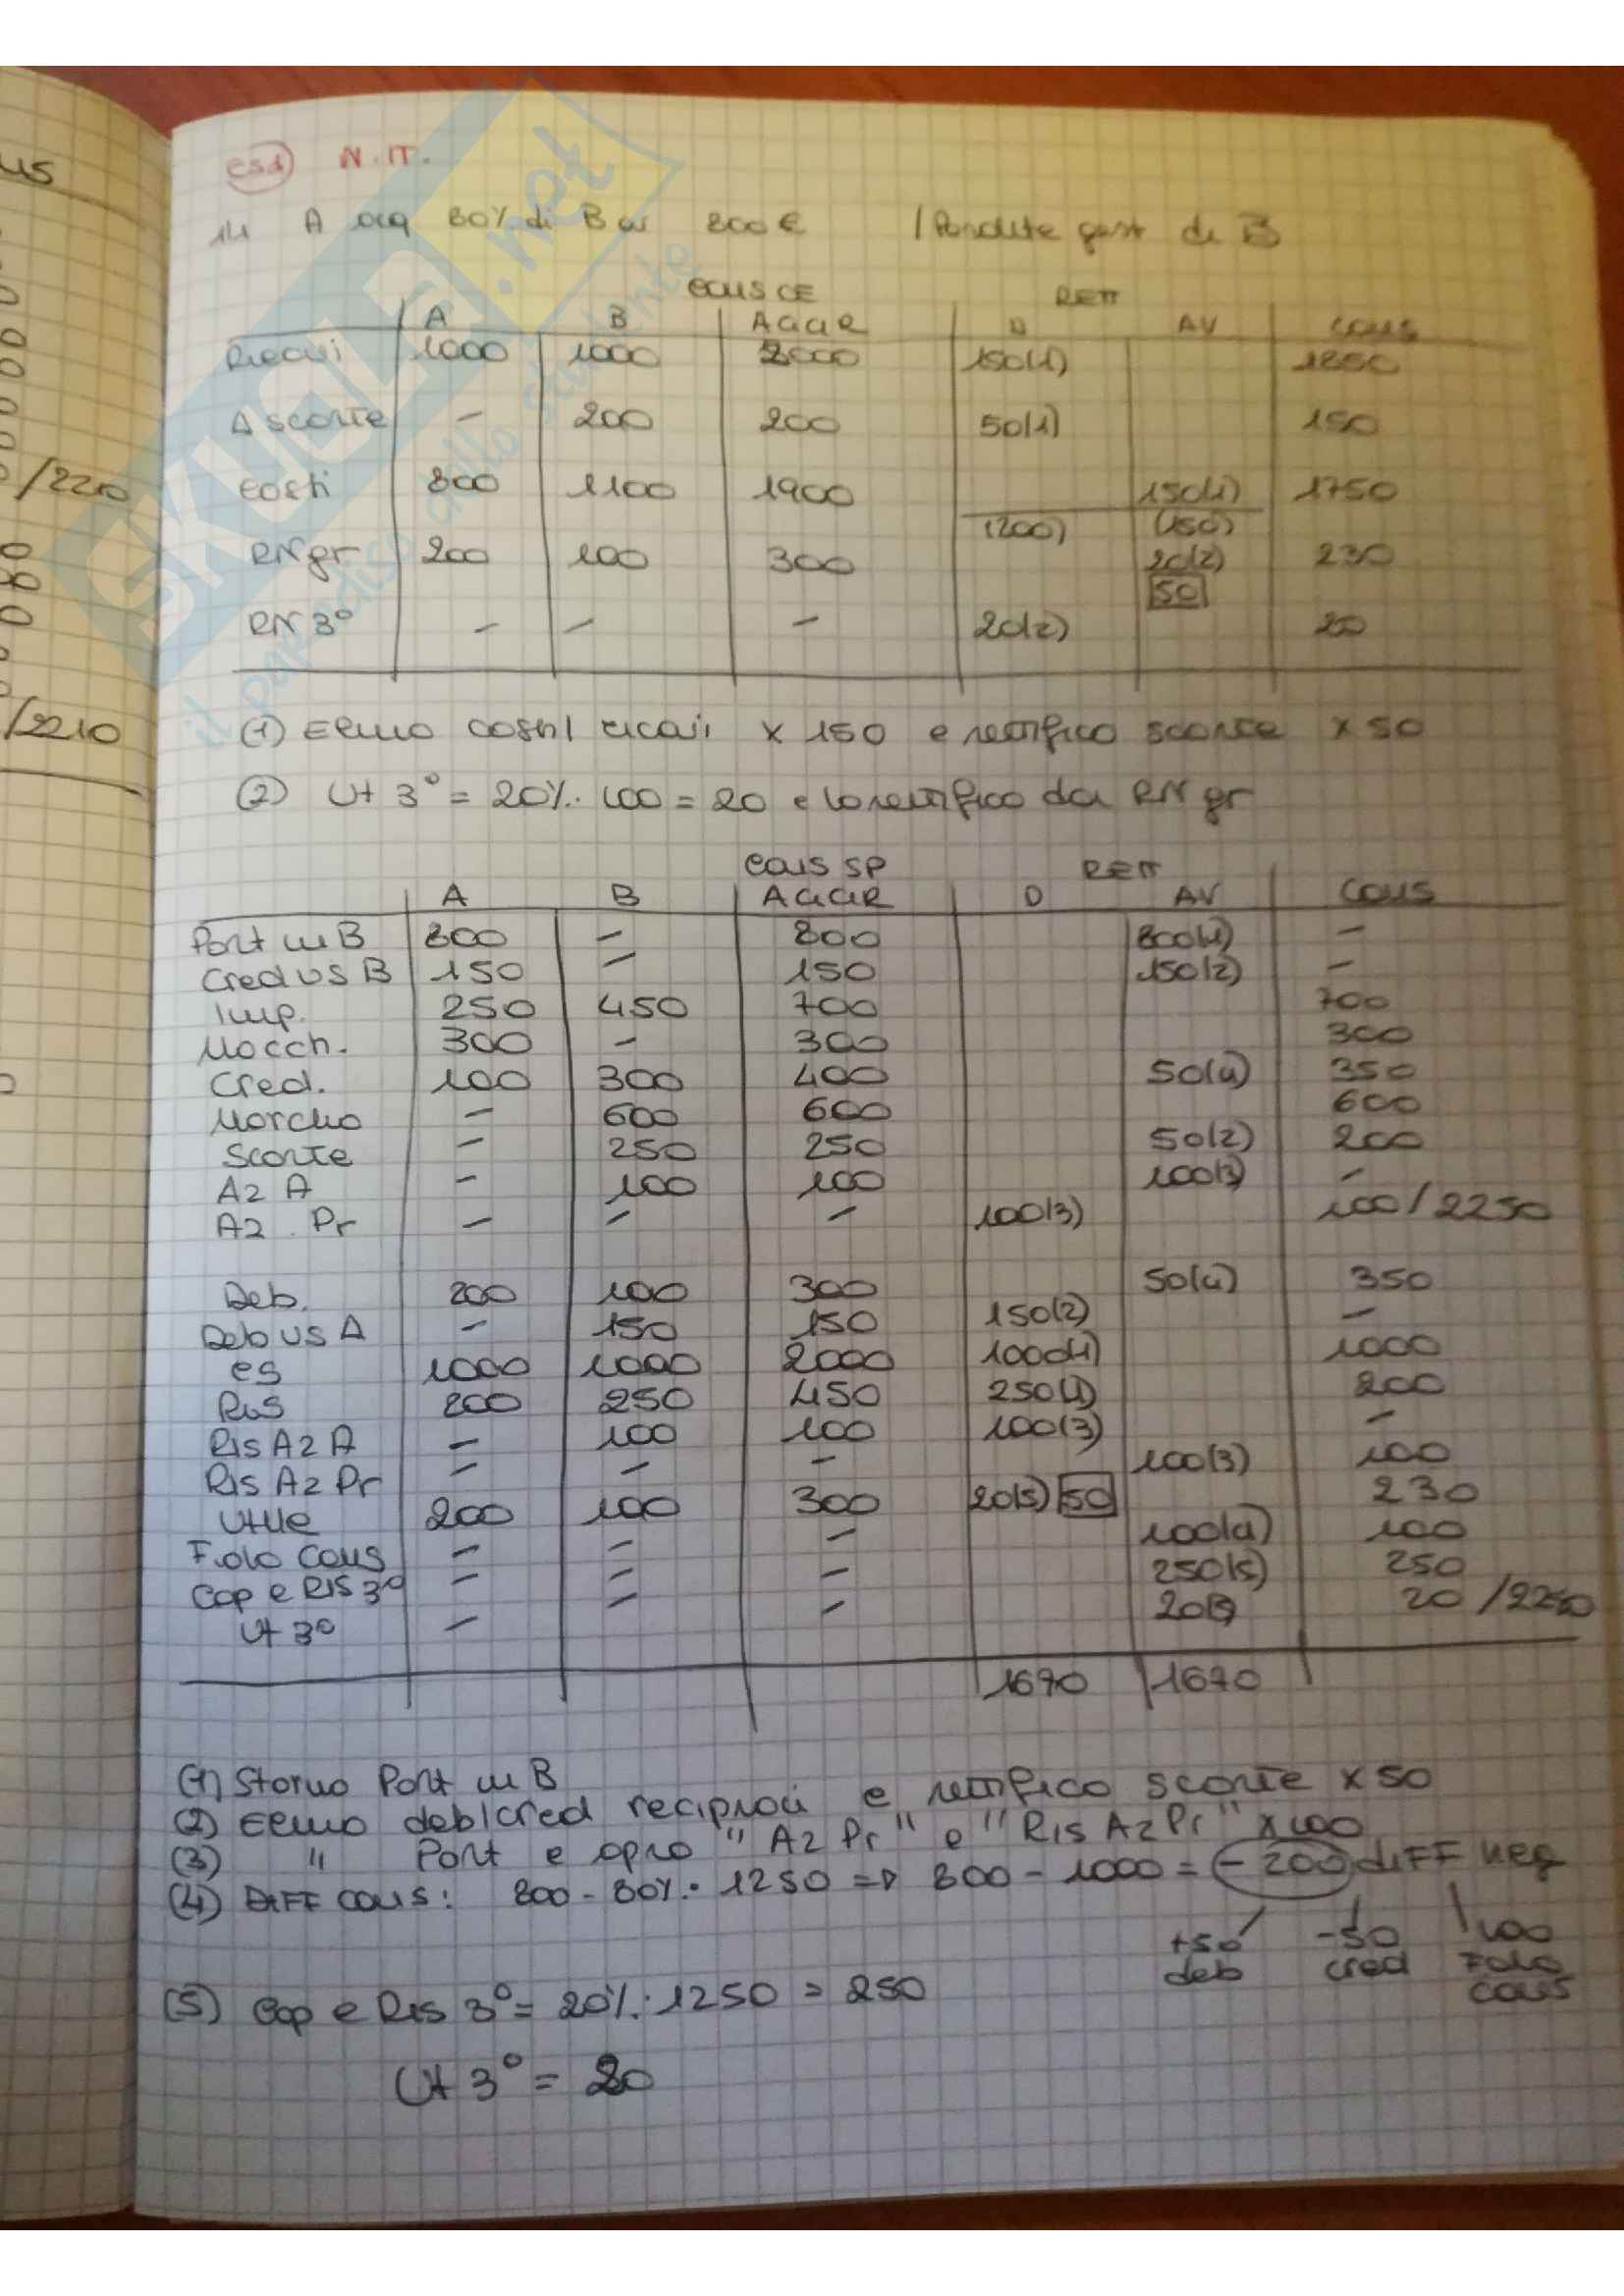 us
/2210
/2210
es1 N.IT.
1/1 A acq 80% di B x 800€ / Perdite gest di B
CONS CE RETT
A B AGGR D AV CONS
Ricavi 1000 1000 2000 150(1) 1850
Δ scorte - 200 200 50(1) 150
Costi 800 1100 1900 150(1) 1750
(200) (150)
RN gr 200 100 300 20(2) 230
50
RN 3° - - - 20(2) 20
(1) Elimino costi/ ricavi x 150 e rettifico scorte x 50
(2) Ut 3° = 20%. 100 = 20 e lo rettifico da RN gr
CONS SP RETT
A B AGGR D AV CONS
Part in B 800 - 800 800(1) -
Cred vs B 150 - 150 150(2) -
Imp. 250 450 700 700
Macch. 300 - 300 300
Cred. 100 300 400 50(4) 350
Marchio - 600 600 600
Scorte - 250 250 50(2) 200
Az A - 100 100 100(3) -
Az. Pr - - - 100(3) 100/2250
Deb. 200 100 300 50(4) 350
Deb vs A - 150 150 150(2) -
CS 1000 1000 2000 1000(1) 1000
Ris 200 250 450 250(1) 200
Ris Az A - 100 100 100(3) -
Ris Az Pr - - - 100(3) 100
Utile 200 100 300 20(5) 50 230
F.do Cons - - - 100(4) 100
Cap e Ris 3° - - - 250(5) 250
Ut 3° - - - 20(5) 20 /2250
1670 1670
(1) Storno Part in B
(2) Elimino deb/cred reciproci e rettifico scorte x 50
(3) " Part e apro "Az Pr" e "Ris Az Pr" x 100
(4) DIFF CONS: 800 - 80%. 1250 => 800 - 1000 = -200 diff neg
+50 -50 100
deb cred F.do
cons
(5) Cap e Ris 3° = 20%. 1250 = 250
Ut 3° = 20
SKUOLA.net
il paradiso dello studente